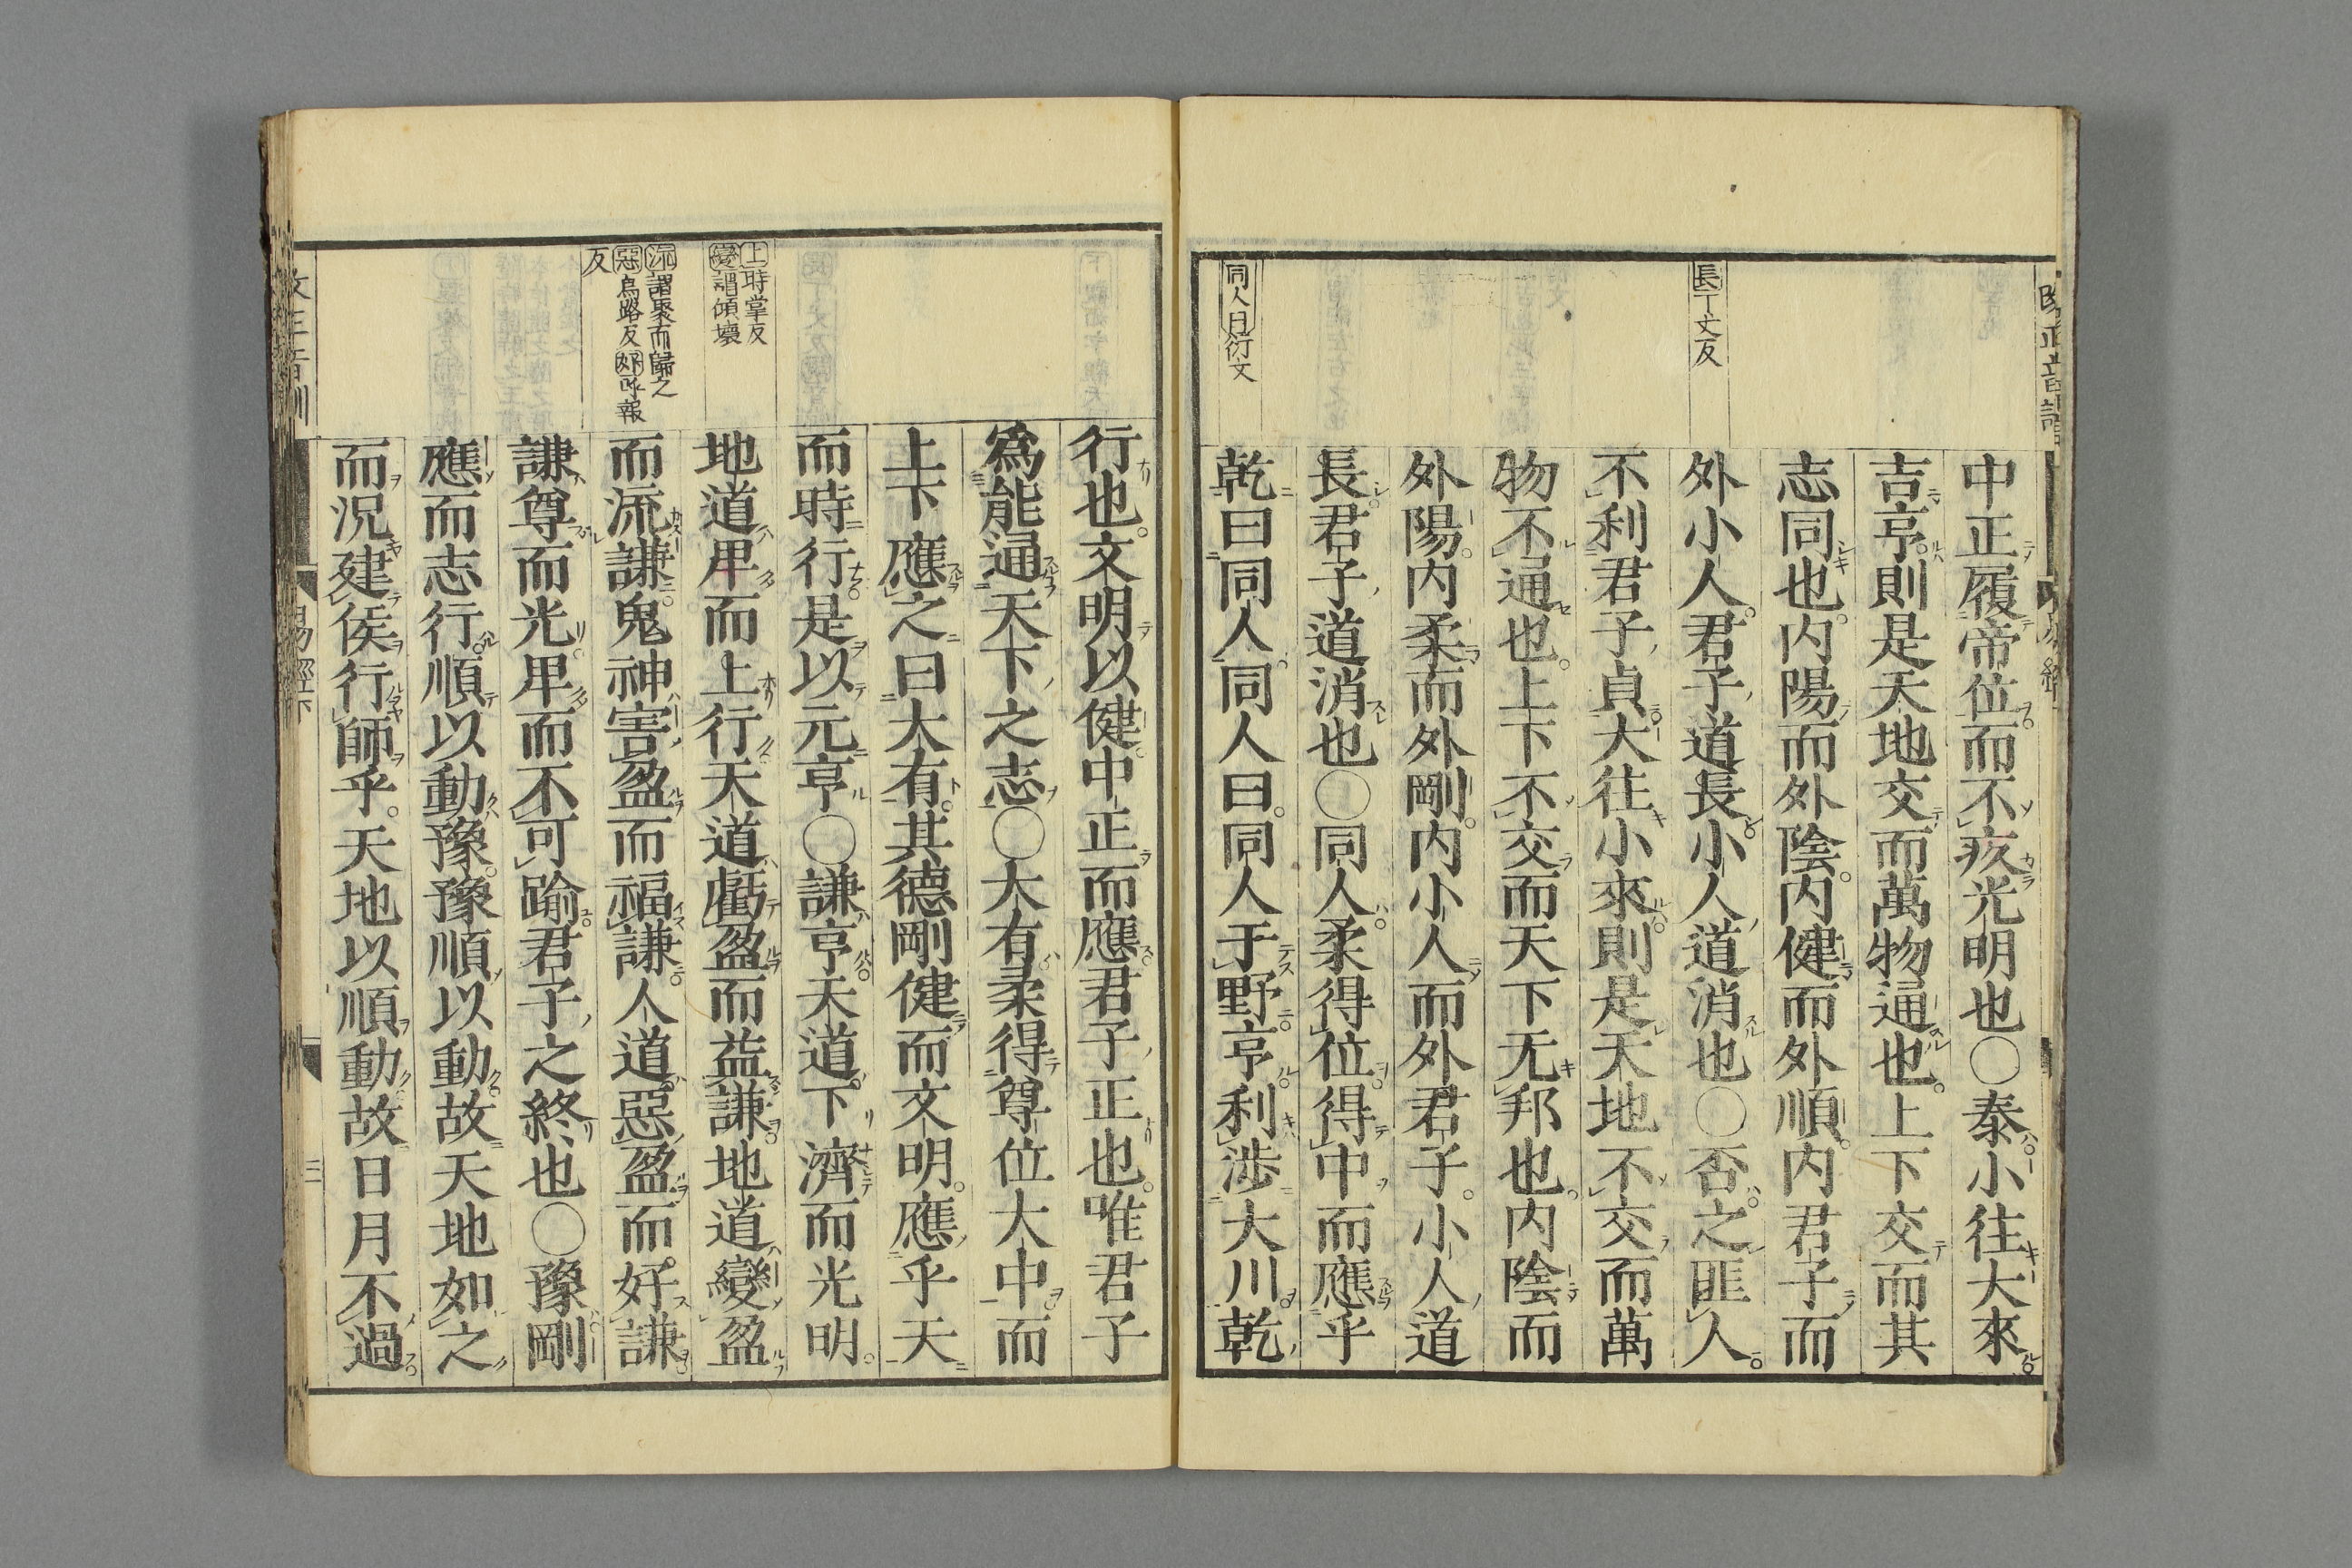 長丁丈反
同人曰衍文
中正履帝位。而不疚光明也〇泰。小往大來。
吉亨。則是天地交而萬物通也。上下交而其
志同也。内陽而外陰。内健而外順。内君子而
外小人。君子道長。小人道消也〇否。之匪人。
不利君子貞。大往小來。則是天地不交而萬
物不通也。上下不交而天下无邦也。内陰而
外陽。内柔而外剛。内小人而外君子。小人道
長。君子道消也〇同人。柔得位。得中而應乎
乾曰同人。同人曰。同人于野。亨。利渉大川。乾
上時掌反
變謂傾壞
流謂聚而歸之
惡烏路反好呼報
反
行也。文明以健。中正而應。君子正也。唯君子
爲能通天下之志〇大有。柔得尊位大中。而
上下應之曰大有。其德剛健而文明。應乎天
而時行。是以元亨〇謙亨。天道下濟而光明。
地道卑而上行。天道虧盈而益謙。地道變盈
而流謙。鬼神害盈而福謙。人道惡盈而好謙。
謙尊而光。卑而不可踰。君子之終也〇豫。剛
應而志行。順以動豫。豫順以動。故天地如之
而況建侯行師乎。天地以順動。故日月不過。
易經下
三